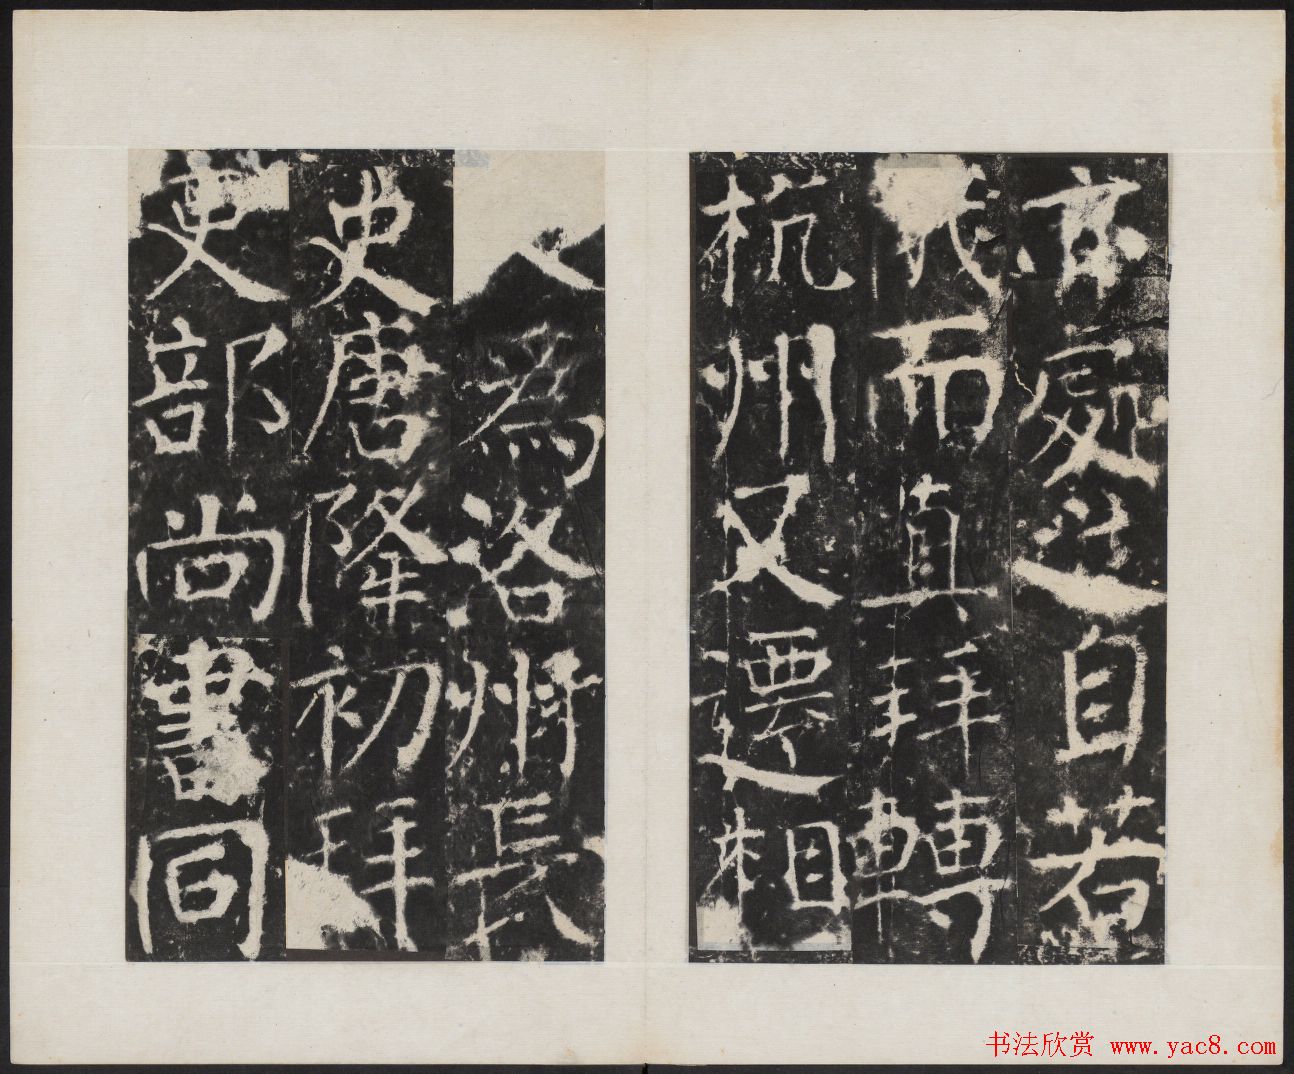 處之自若
而直拜轉
杭州又遷相
為洛州長
史唐隆初拜
吏部尚書同
书法欣赏 www.yac8.com